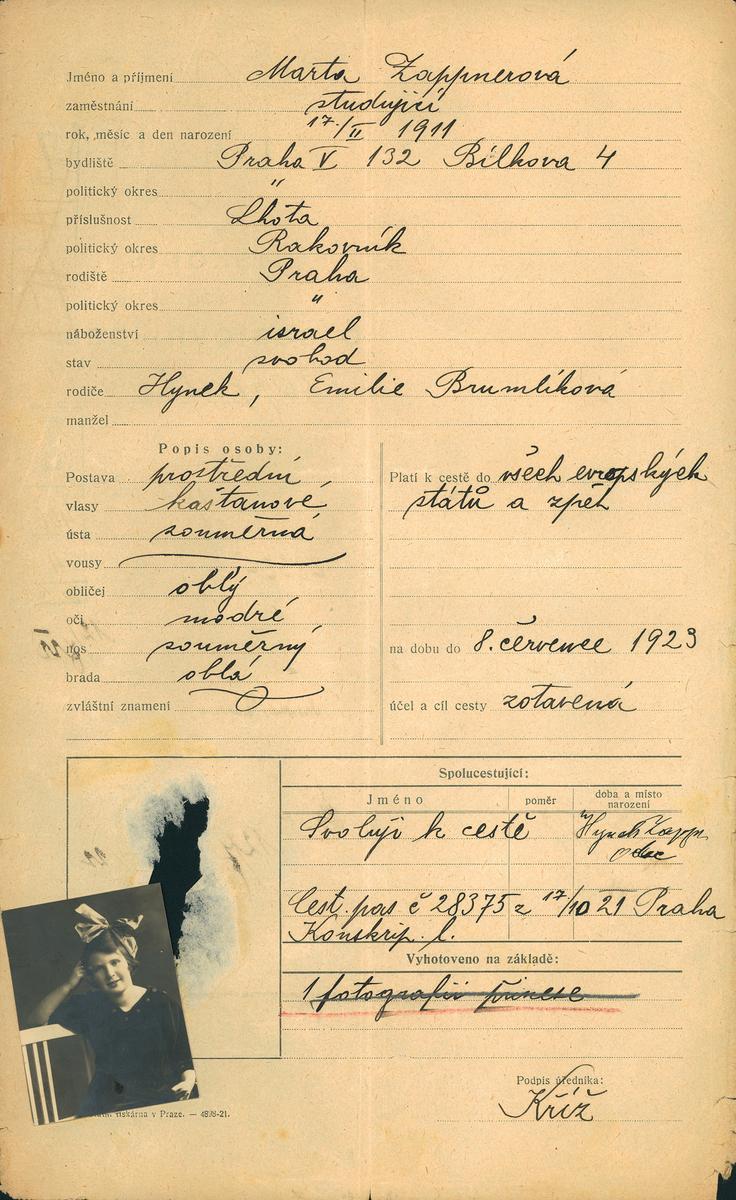 Jméno a příjmení Marta Zappnerová
zaměstnání studující
rok, měsíc a den narození 17./II 1911
bydliště Praha V 132 Bílkova 4
politický okres "
příslušnost Lhota
politický okres Rakovník
rodiště Praha
politický okres "
náboženství israel
stav svobod
rodiče Hynek, Emilie Brumlíková
manžel
Popis osoby:
Postava prostřední
vlasy kaštanové
ústa souměrná
vousy
obličej oblý
oči modré
nos souměrný
brada oblá
zvláštní znamení
Platí k cestě do všech evropských
států a zpět
na dobu do 8. července 1923
účel a cíl cesty zotavená
Spolucestující:
Jméno poměr doba a místo narození
Svoluji k cestě Hynek Zappn
otec
Cest. pas č 28375 z 17/10 21 Praha
Konskrip. l.
Vyhotoveno na základě:
1 fotografii přinese
Podpis úředníka:
Kříž
tiskárna v Praze. — 4898-21.